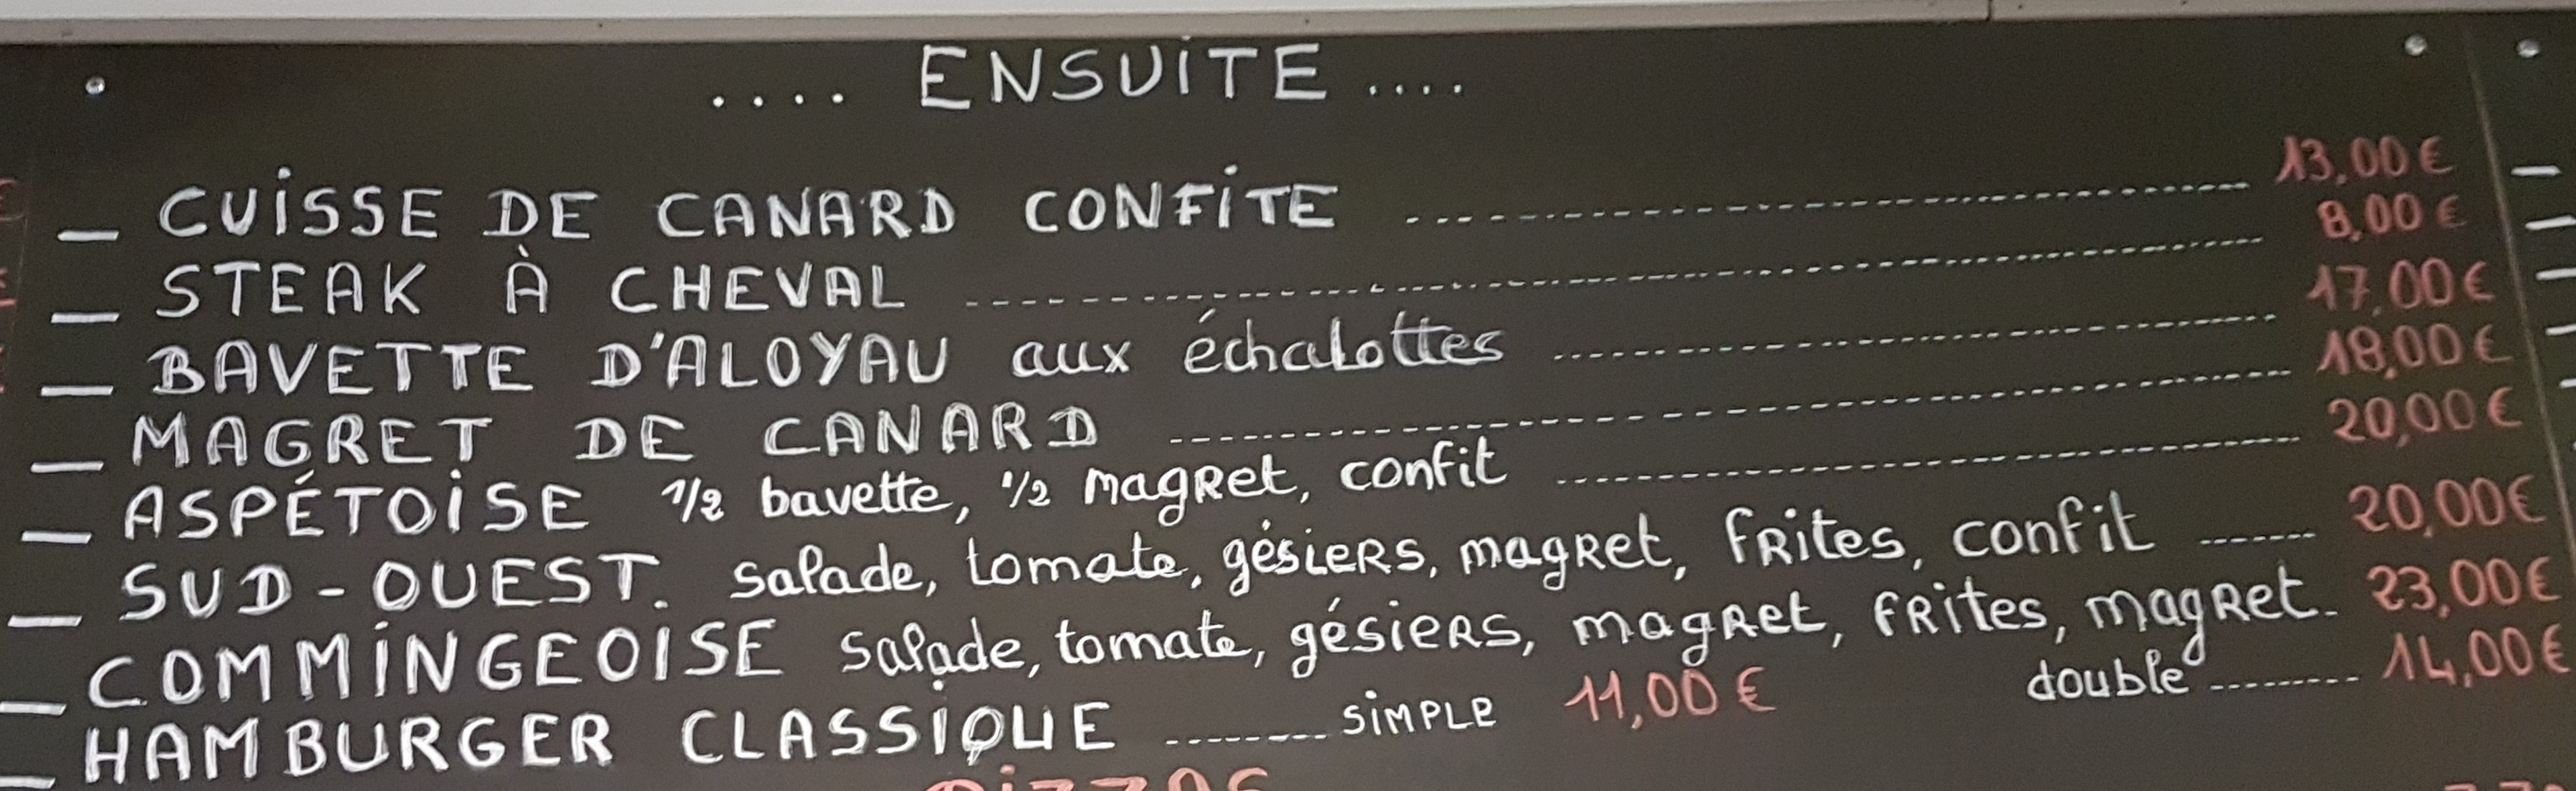 .... ENSUITE ....
_ CUISSE DE CANARD CONFITE ---------- 13,00 €
_ STEAK À CHEVAL ---------- 8,00 €
_ BAVETTE D'ALOYAU aux échalottes ---------- 17,00 €
_ MAGRET DE CANARD ---------- 18,00 €
_ ASPÉTOISE 1/2 bavette, 1/2 magret, confit ---------- 20,00 €
_ SUD-OUEST. salade, tomate, gésiers, magret, frites, confit ------- 20,00 €
_ COMMINGEOISE salade, tomate, gésiers, magret, frites, magret. 23,00 €
_ HAMBURGER CLASSIQUE -------- SIMPLE 11,00 € double --------- 14,00 €